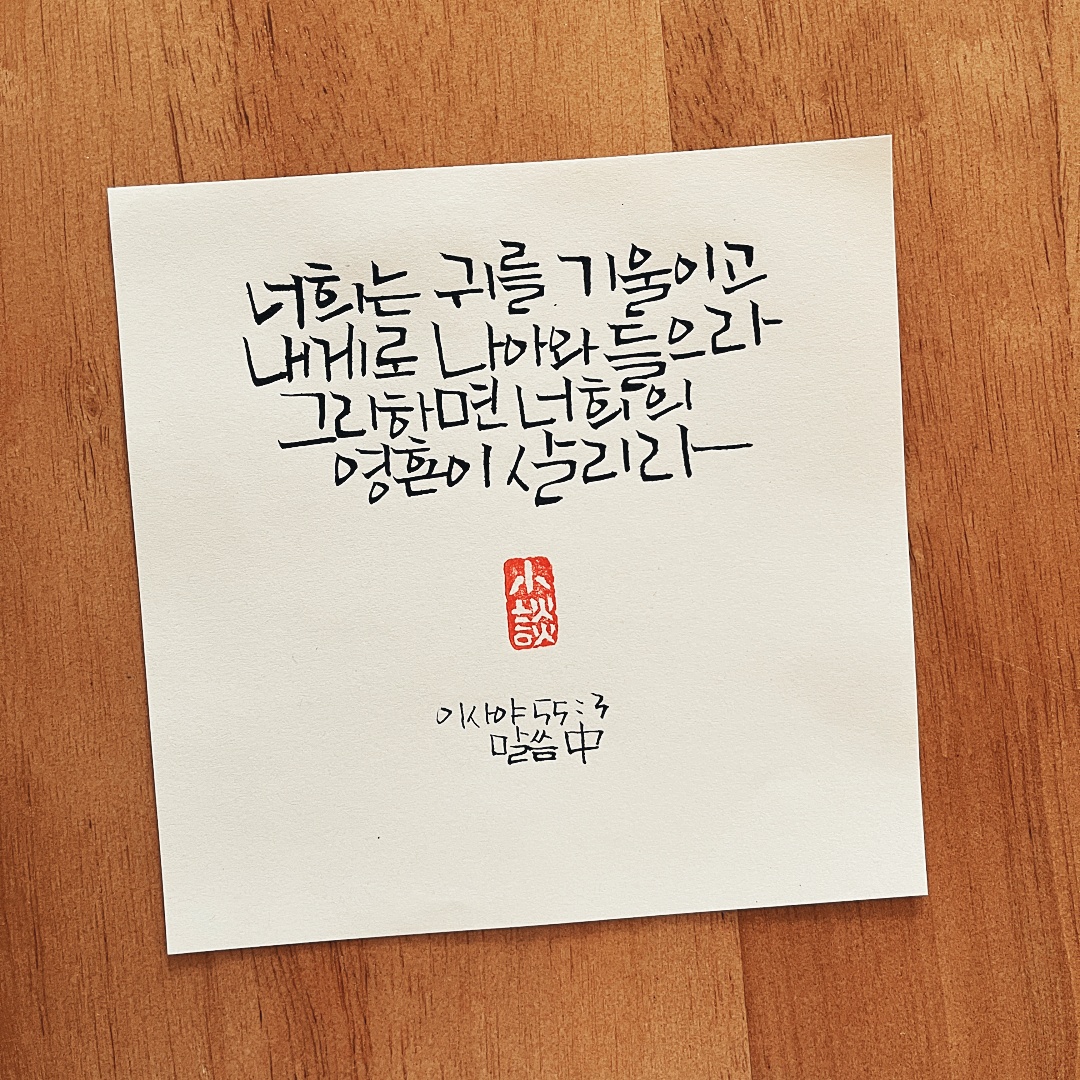 너희는 귀를 기울이고
내게로 나아와 들으라
그리하면 너희의
영혼이 살리라
小談
이사야 55:3
말씀 中